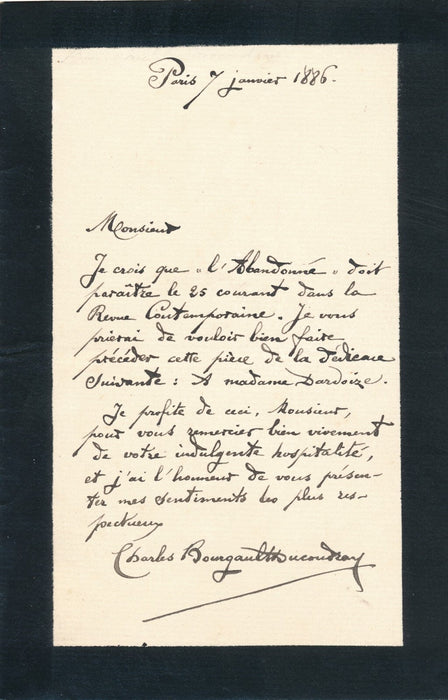 Paris 7 janvier 1886.
Monsieur
Je crois que "l'Abandonné" doit
paraître le 25 courant dans la
Revue Contemporaine. Je vous
prierai de vouloir bien faire
précéder cette pièce de la dédicace
suivante : A madame Dardoize.
Je profite de ceci, Monsieur,
pour vous remercier bien vivement
de votre indulgente hospitalité,
et j'ai l'honneur de vous présen-
ter mes sentiments les plus res-
pectueux
Charles Bourgault Ducoudray